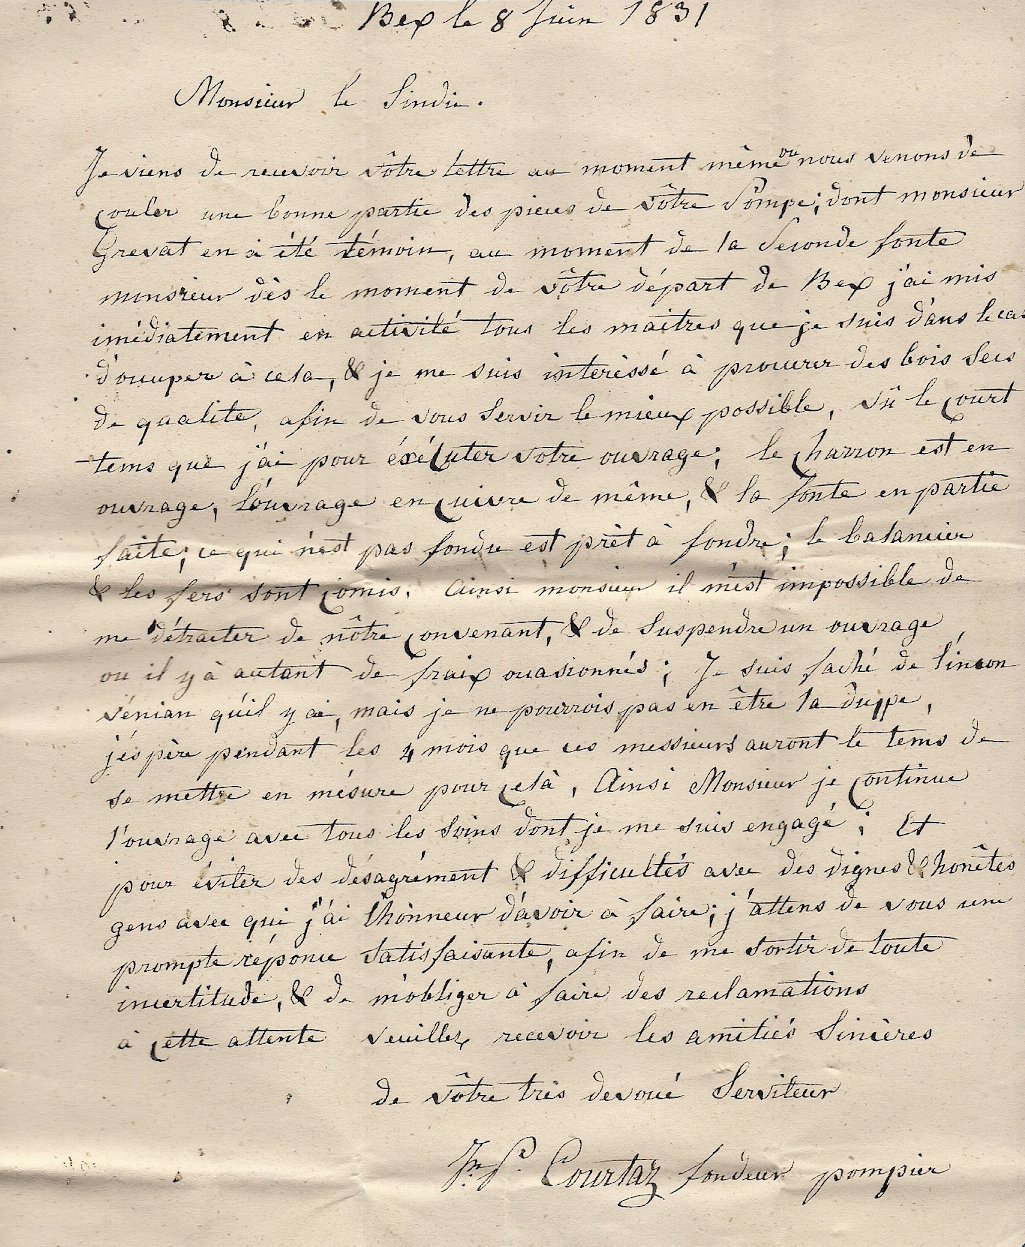 Bex le 8 Juin 1831
Monsieur le Sindic.
Je viens de recevoir vôtre lettre au moment même ou nous venons de
couler une bonne partie des pieces de vôtre Pompe; dont monsieur
Grevat en à été témoin, au moment de la Seconde fonte
monsieur dès le moment de vôtre départ de Bex j'ai mis
imédiatement en activité tous les maitres que je suis dans le cas
d'occuper à cela, & je me suis intèréssé à procurer des bois secs
de qualite, afin de vous servir le mieux possible, vû le court
tems que j'ai pour éxécuter votre ouvrage; le charron est en
ouvrage, l'ouvrage en cuivre de même, & la fonte en partie
faite; ce qui n'est pas fondu est prèt à fondre; le balancier
& les fers sont comis. Ainsi monsieur il m'est impossible de
me détracter de nôtre convenant, & de suspendre un ouvrage
ou il y à autant de fraix ocasionnés; Je suis faché de l'incon
vénian qu'il y ai, mais je ne pourrois pas en être la duppe,
j'éspère pendant les 4 mois que ces messieurs auront le tems de
se mettre en mésure pour celà, Ainsi Monsieur je continue
l'ouvrage avec tous les soins dont je me suis engagé; Et
pour éviter des désagrément & difficultés avec des dignes & honêtes
gens avec qui j'ai l'honneur d'avoir à faire; j'attens de vous une
prompte réponce satisfaisante, afin de me sortir de toute
incertitude, & de m'obliger à faire des reclamations
à cette attente veuillez recevoir les amitiés Sincères
de vôtre très devoué Serviteur
Jn P. Courtaz fondeur pompier